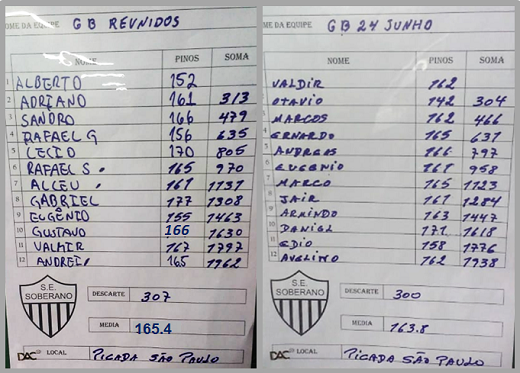 OME DA EQUIPE GB REUNIDOS
NOME PINOS SOMA
1 ALBERTO 152
2 ADRIANO 161 313
3 SANDRO 166 479
4 RAFAEL G 156 635
5 LECIO 170 805
6 RAFAEL S. 165 970
7 ALCEU 167 1137
8 GABRIEL 171 1308
9 EUGÊNIO 155 1463
10 GUSTAVO 166 1630
11 VALMIR 167 1797
12 ANDREI 165 1962
S.E. SOBERANO
DESCARTE 307
MEDIA 165.4
DAC LOCAL PICADA SÃO PAULO
OME DA EQUIPE GB 24 JUNHO
NOME PINOS SOMA
VALDIR 162
2 OTAVIO 142 304
3 MARCOS 162 466
4 ERNARDO 165 631
5 ANDREAS 166 797
6 EUGENIO 161 958
7 MARCO 165 1123
8 JAIR 161 1284
9 ARMINDO 163 1447
10 DANIEL 171 1618
11 EDIO 158 1776
12 AVELINO 162 1938
S.E. SOBERANO
DESCARTE 300
MEDIA 163.8
DAC LOCAL PICADA SÃO PAULO